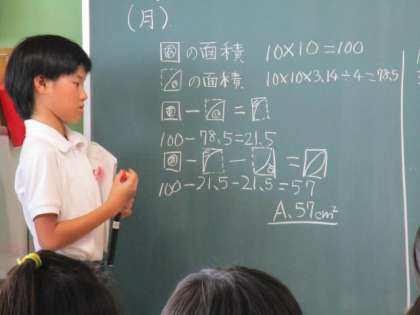 (月)
㋐の面積 10×10=100
㋑の面積 10×10×3.14÷4=78.5
㋐－㋑=
100－78.5=21.5
㋐－－=
100－21.5－21.5=57
A.57cm²